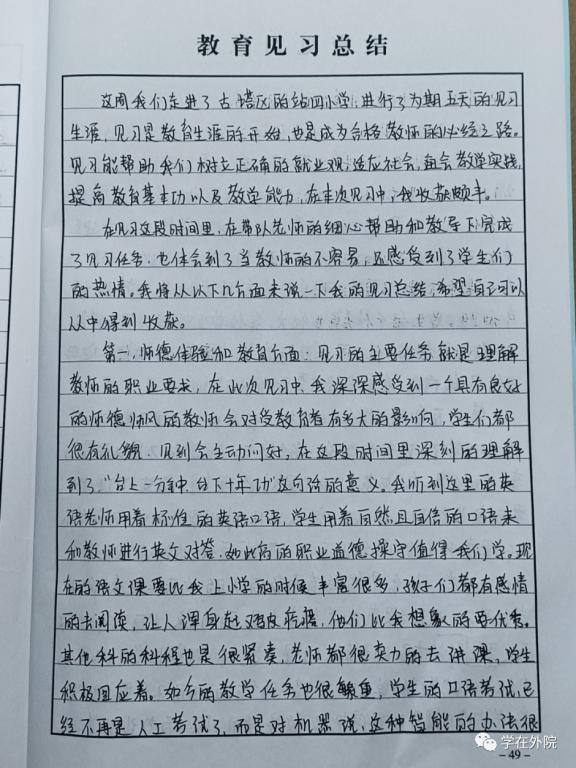 教育见习总结
这周我们走进了古塔区的站四小学，进行了为期五天的见习
生涯，见习是教育生涯的开始，也是成为合格教师的必经之路。
见习能帮助我们树立正确的就业观，适应社会，融会教学实践，
提高教育基本功以及教学能力，在本次见习中，我收获颇丰。
在见习这段时间里，在带队老师的细心帮助和教导下完成
了见习任务，也体会到了当教师的不容易，还感受到了学生们
的热情。我将从以下几方面来说一下我的见习总结，希望自己可以
从中得到收获。
第一，师德体验和教育方面：见习的主要任务就是理解
教师的职业要求，在此次见习中，我深深感受到一个具有良好
的师德师风的教师会对受教育者有多大的影响，学生们都
很有礼貌，见到会主动问好，在这段时间里深刻的理解
到了"台上一分钟，台下十年功"这句话的意义。我听到这里的英
语老师用着标准的英语口语，学生用着自然且自信的口语来
和教师进行英文对答，如此高的职业道德操守值得我们学。现
在的语文课要比我上小学的时候丰富很多，孩子们都有感情
的去阅读，让人浑身起鸡皮疙瘩，他们比我想象的要优秀。
其他科的科程也是很紧凑，老师都很卖力的去讲课，学生
积极回应着。如今的教学任务也很繁重，学生的口语考试已
经不再是人工考试了，而是对机器说，这种智能的办法很
学在外院
-49-